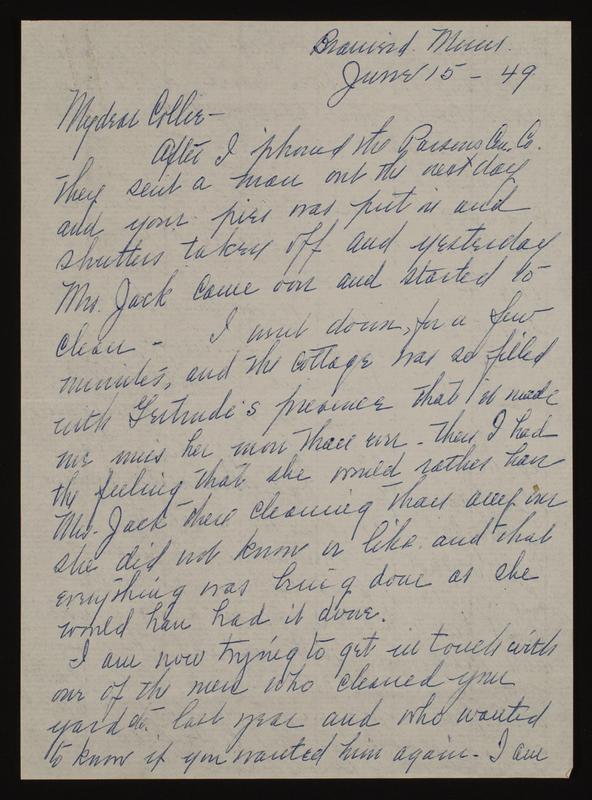 Brainerd. Minn.
June 15 - 49
My dear Collie -
After I phoned the Parsons Con. Co.
they sent a man out the next day
and your pier was put in and
shutters taken off and yesterday
Mrs. Jack came out and started to
clean - I went down, for a few
minutes, and the cottage was so filled
with Gertrude's presence that it made
me miss her more than ever - then I had
the feeling that she would rather have
Mrs. Jack there cleaning than any one
she did not know or like and that
everything was being done as she
would have had it done.
I am now trying to get in touch with
one of the men who cleaned your
yard last year and who wanted
to know if you wanted him again - I am